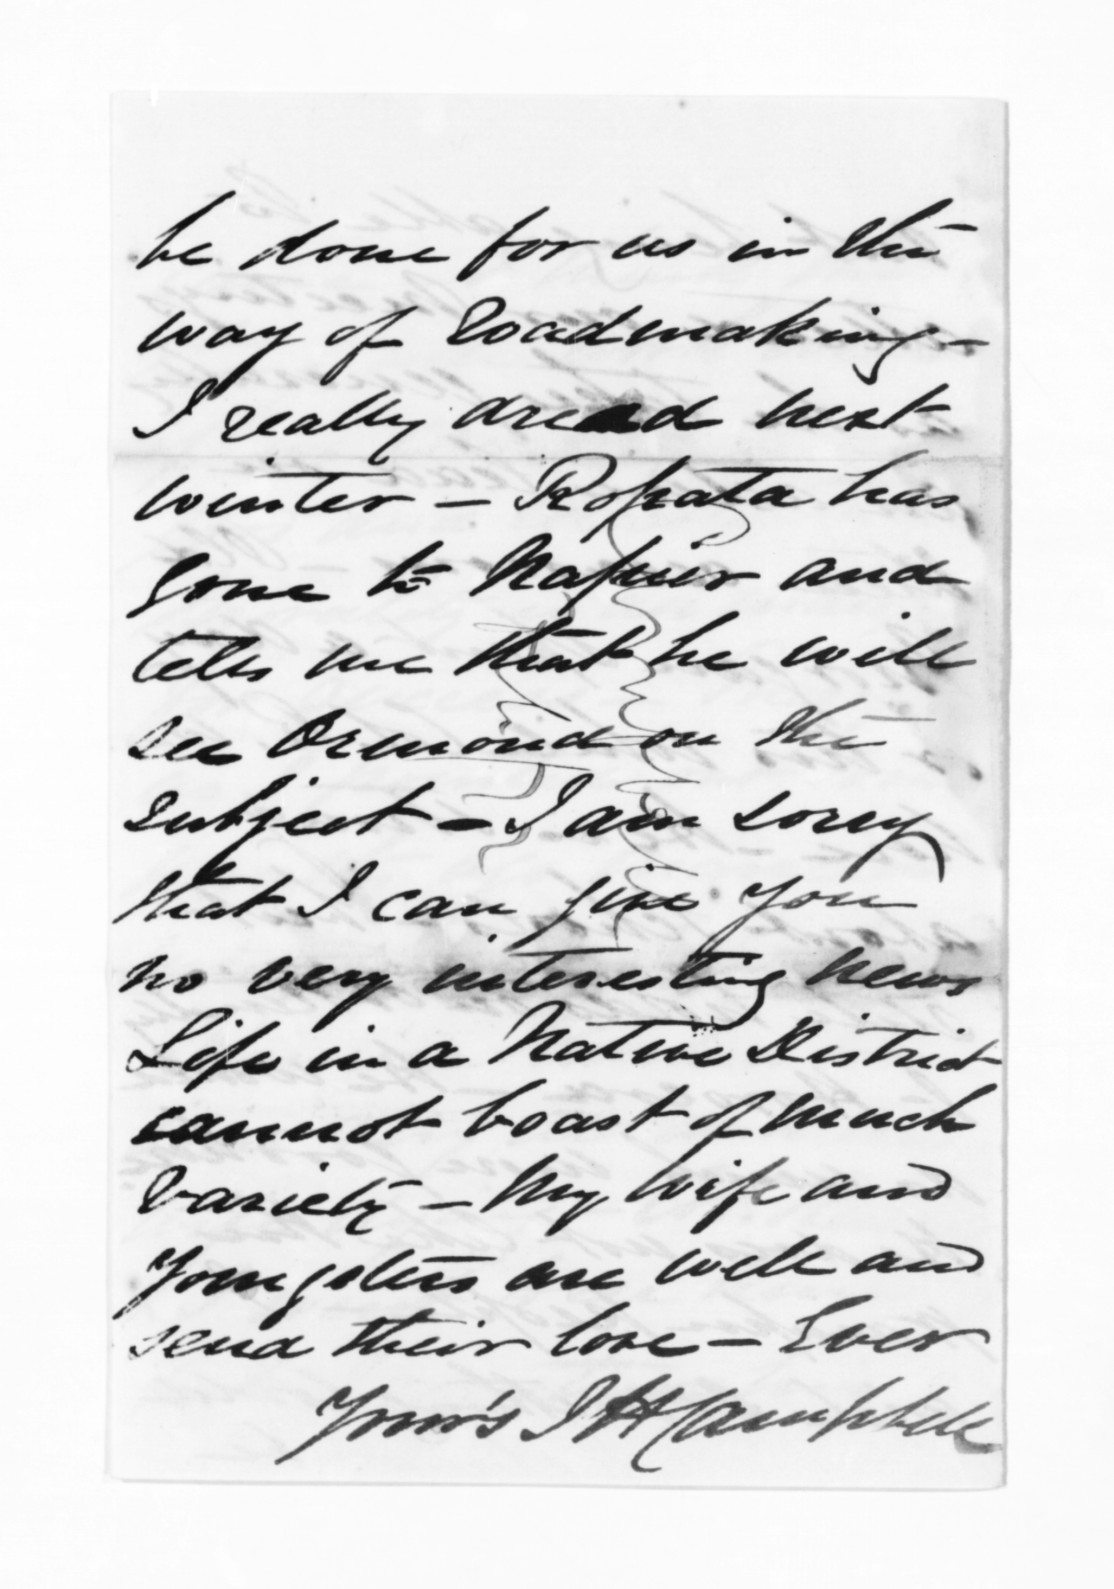 be done for us in the
way of Roadmaking -
I really dread next
winter - Ropata has
gone to Napier and
tells me that he will
see Ormond on the
subject - I am sorry
that I can give you
no very interesting news
Life in a Native District
cannot boast of much
variety - My wife and
youngsters are well and
send their love - Ever
Your's J H Campbell